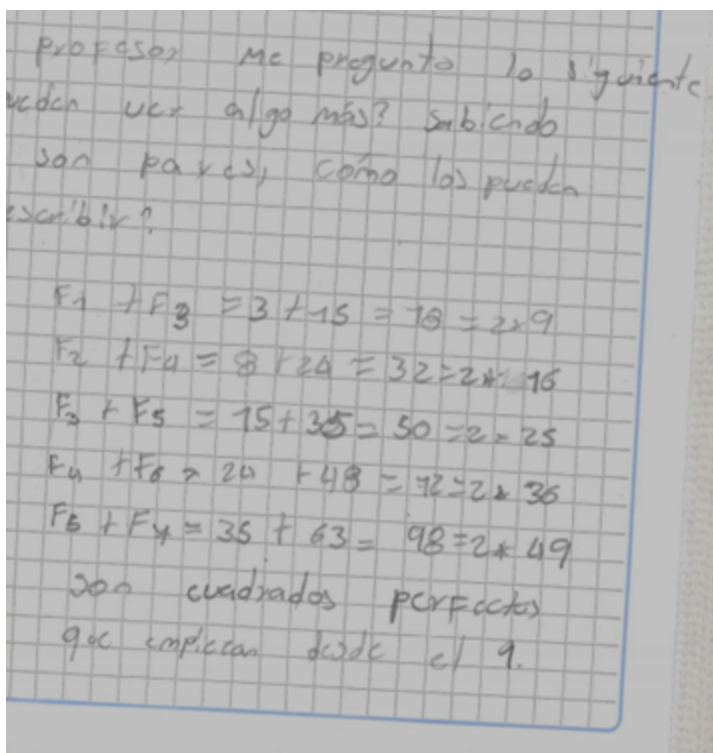 profesor me pregunto lo siguiente
ueden ver algo más? Sabiendo
son pares, cómo los pueden
escribir?
F1 + F3 = 3 + 15 = 18 = 2*9
F2 + F4 = 8 + 24 = 32 = 2* 16
F3 + F5 = 15 + 35 = 50 = 2* 25
F4 + F6 = 24 + 48 = 72 = 2* 36
F5 + F7 = 35 + 63 = 98 = 2* 49
son cuadrados perfectos
que empiezan desde el 9.